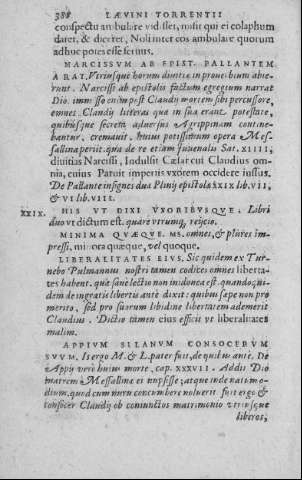 388 LÆVINI TORRENTII
conspectu ambulare vidisset, misit qui ei colaphum
daret, & diceret, Noli inter eos ambulare quorum
adhuc potes esse seruus.
NARCISSVM AB EPIST. PALLANTEM
A RAT. Vtriusque horum diuitiæ in prouerbium abie-
runt. Narcissi ab epistolis factum egregium narrat
Dio. immisso enim pest Claudij mortem sibi percussore,
omnes Claudij litteras quæ in sua erant potestate,
quibusque secretis aduersus Agrippinam contine-
bantur, cremauit. huius potissimum opera Mes-
sallina periit. qua de re etiam Iuuenalis Sat. XIIII,
diuitias Narcissi, Indulsit Cæsar cui Claudius om-
nia, cuius Paruit imperiis vxorem occidere iussus.
De Pallante insignes duæ Plinij epistolæ XXIX lib. VII,
& VI lib. VIII.
XXIX. HIS VT DIXI VXORIBVSQVE. Libri
duo vt dictum est. quare vtrumq, reijcio.
MINIMA QVÆQVE. MS. omnes, & plures im-
pressi, minora quæque, vel quoque.
LIBERALITATES EIVS. Sic quidem ex Tur-
nebo Pulmannus nostri tamen codices omnes liberta-
tes habent. quæ sane lectio non inidonea est. quando, qui-
dem de ingratis libertis ante dixit: quibus sæpe non pro
merito, sed pro suarum libidine libertatem ademerit
Claudius. Dictio tamen eius efficit vt liberalitates
malim.
APPIVM SILANVM CONSOCERVM
SVVM. Is ergo M. & L. pater fuit, de quibus ante. De
Appij vero huius morte, cap. XXXVII. Addit Dio
matrem Messallinæ ei nupsisse; atque inde natum o-
dium, quod cum nuru concumbere noluerit fuit ergo &
consocer Claudij ob coniunctos matrimonio vtriusque
liberos,